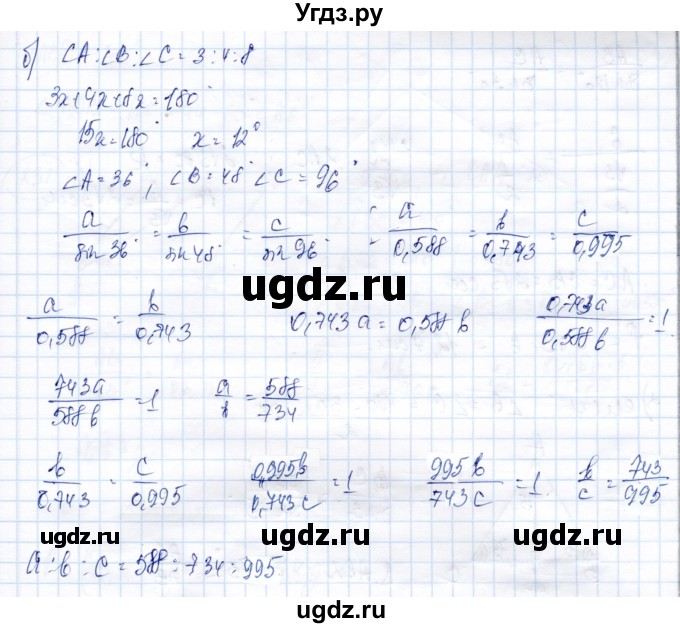 Угдз.ру
б) ∠A:∠B:∠C = 3:4:8
3x+4x+8x=180°
15x=180° x = 12°
∠A = 36°, ∠B = 48° ∠C = 96°
a/sin 36° = b/sin 48° = c/sin 96° : a/0,588 = b/0,743 = c/0,995
ugdz.ru ugdz.ru
a/0,588 = b/0,743 0,743a = 0,588b 0,743a/0,588b = 1
743a/588b = 1 a/b = 588/734
b/0,743 = c/0,995 0,995b/0,743c = 1 995b/743c = 1 b/c = 743/995
ugdz.ru ugdz.ru
a:b:c = 588:734:995
ugdz.ru